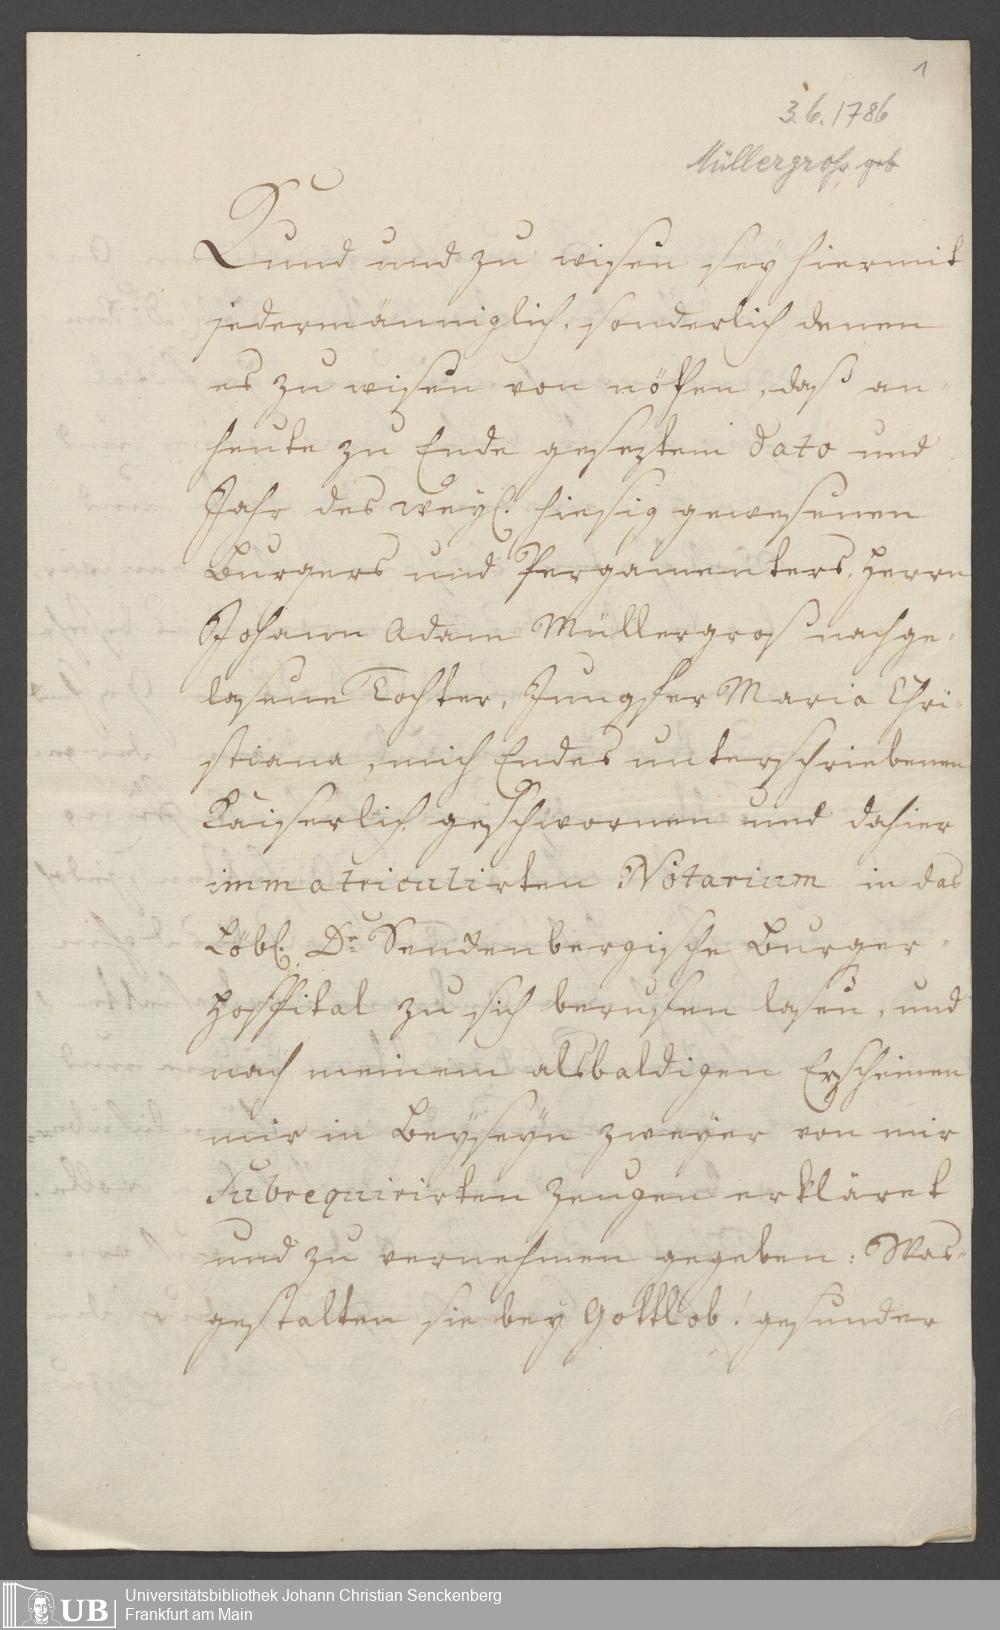 1
3.6.1786
Müllergroß, geb
Kund und zu wisen sey hiermit
jedermänniglich, sonderlich denen
es zu wisen von nöthen, daß an-
heute zu Ende geseztem Dato und
Jahr des weyl. hiesig gewesenen
Burgers und Pergamenters, Herrn
Johann Adam Müllergroß nachge-
lasene Tochter, Jungfer Maria Chri-
stiana, mich Endes unterschriebenen
Kaiserlich geschwornen und dahier
immatriculirten Notarium in das
Löbl. Dr. Senckenbergische Burger-
Hospital zu sich berufen lasen, und
nach meinem alsbaldigen Erscheinen
mir in Beyseyn zweyer von mir
subrequirirten Zeugen erkläret
und zu vernehmen gegeben: Was-
gestalten sie bey Gottlob! gesunder
UB
Universitätsbibliothek Johann Christian Senckenberg
Frankfurt am Main